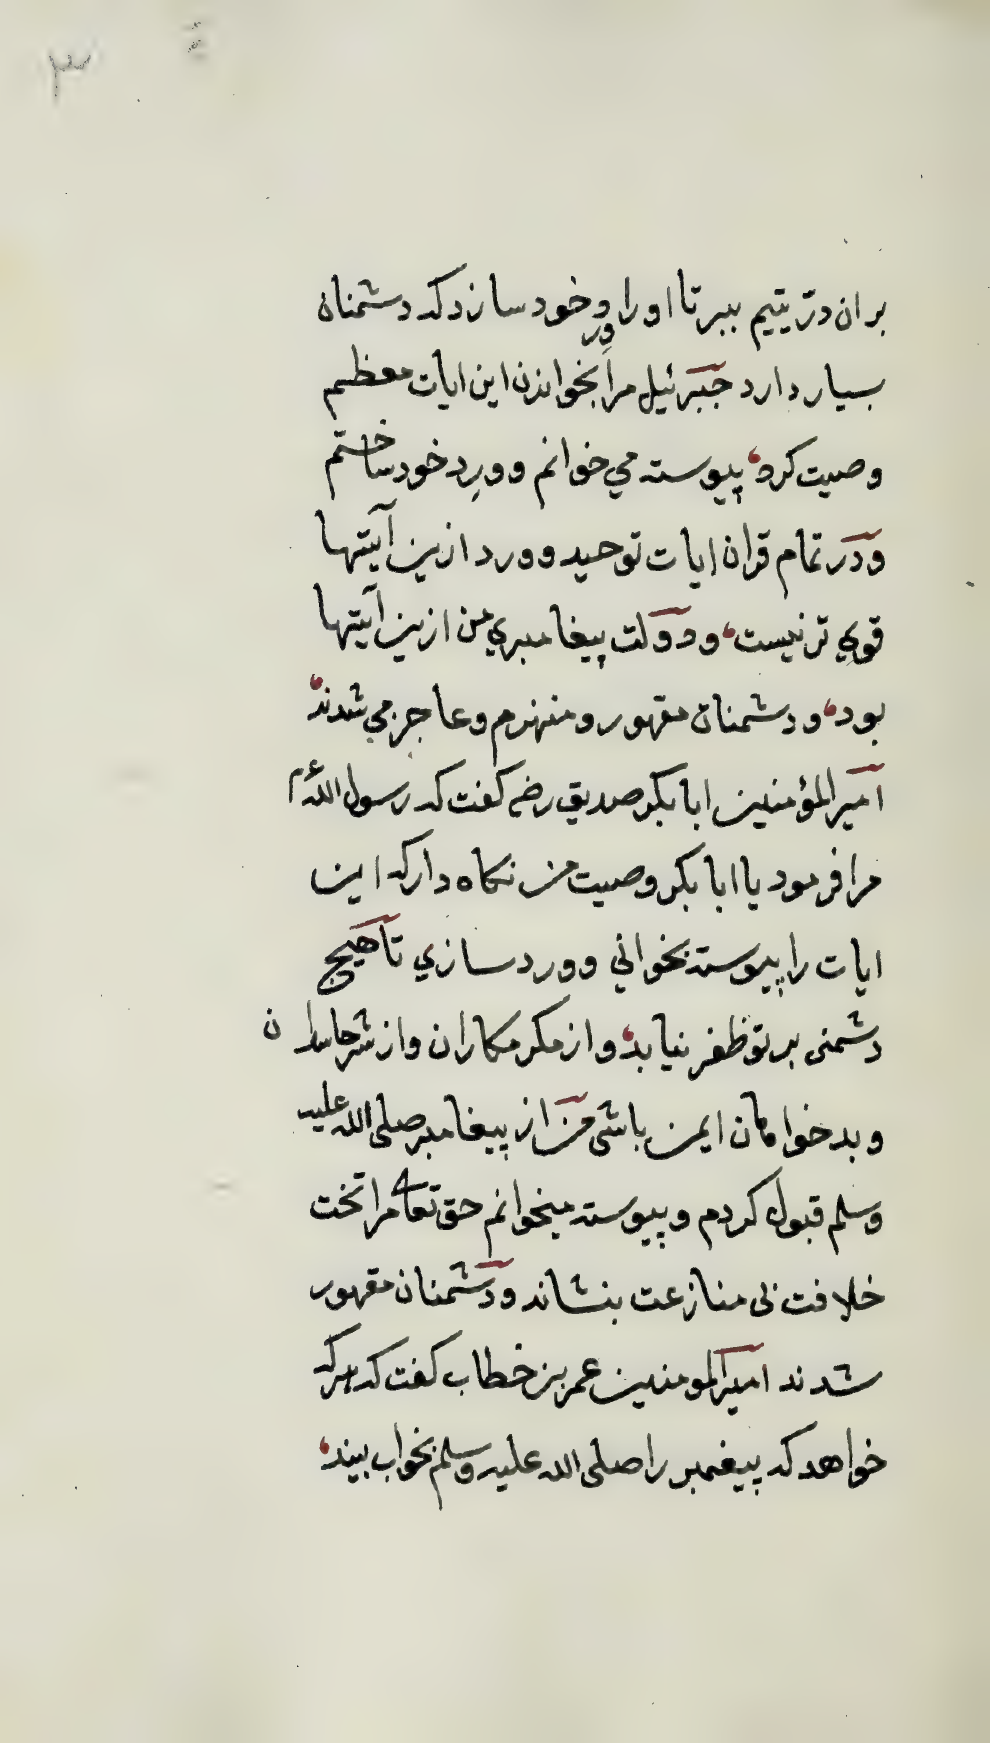 ۳
بران درّ یتیم ببر تا او را ورد خود سازد که دشمنان
بسیار دارد جبرئیل مرا بخواندن این ایات معظم
وصیت کرد پیوسته می خوانم و وِرد خود ساختم
و در تمام قران ایات توحید و ورد ازین آیتها
قوی تر نیست و دولت پیغامبری من ازین آیتها
بود و دشمنان مقهور و منهزم و عاجز می شدند
امیر المؤمنین ابا بکر صدیق رضی گفت که رسول الله عم
مرا فرمود یا ابا بکر وصیت من نگاه دار که این
ایات را پیوسته بخوانی و ورد سازی تا هیچ
دشمنی بر تو ظفر نیابد و از مکر مکاران و از شر حاسدان
و بدخواهان ایمن باشی من از پیغامبر صلی الله علیه
وسلم قبول کردم و پیوسته میخوانم حق تعالی مرا تخت
خلافت بی منازعت بنشاند و دشمنان مقهور
شدند امیر المومنین عمر بن خطاب گفت که هرکه
خواهد که پیغمبر را صلی الله علیه وسلم بخواب بیند